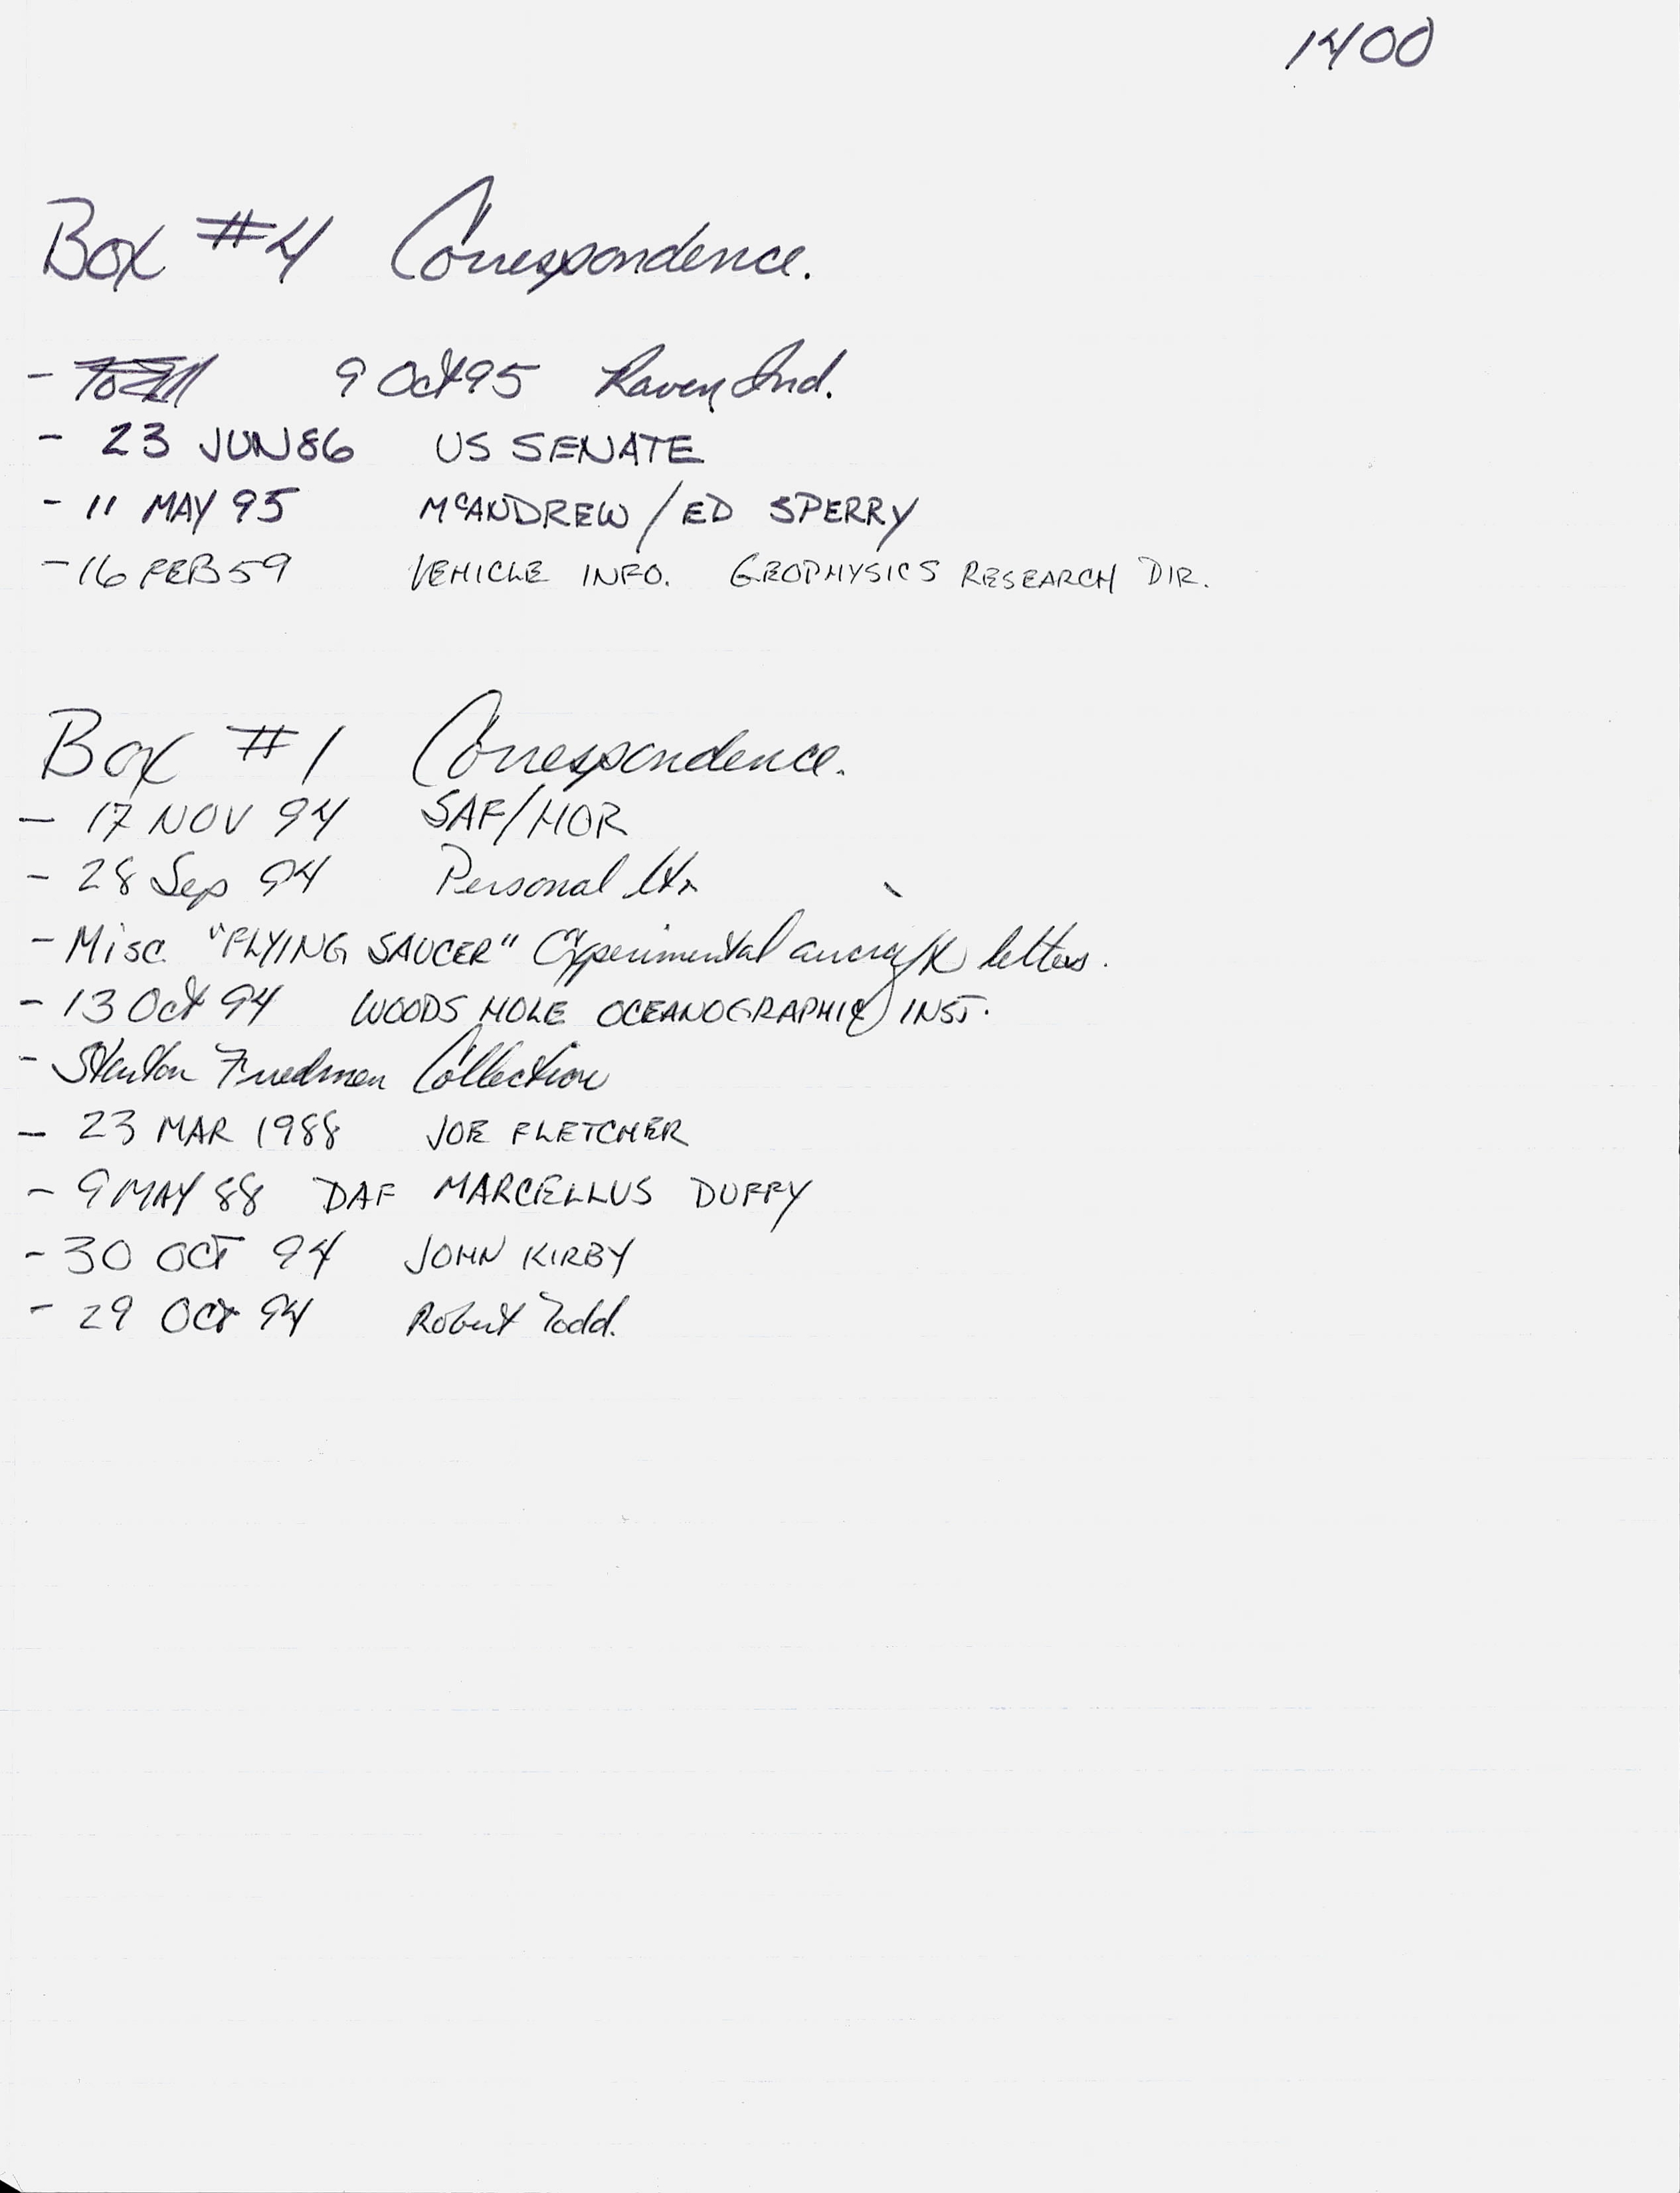 1400
Box #4 Correspondence.
- 9 Oct 95 Raven Ind.
- 23 JUN 86 US SENATE
- 11 MAY 95 McANDREW / ED SPERRY
- 16 FEB 59 VEHICLE INFO. GEOPHYSICS RESEARCH DIR.
Box #1 Correspondence.
- 17 NOV 94 SAF/HOR
- 28 Sep 94 Personal ltr
- Misc. "FLYING SAUCER" Experimental aircraft letters.
- 13 Oct 94 WOODS HOLE OCEANOGRAPHIC INST.
- Stanton Friedman Collection
- 23 MAR 1988 JOE FLETCHER
- 9 MAY 88 DAF MARCELLUS DUFFY
- 30 OCT 94 JOHN KIRBY
- 29 Oct 94 Robert Todd.